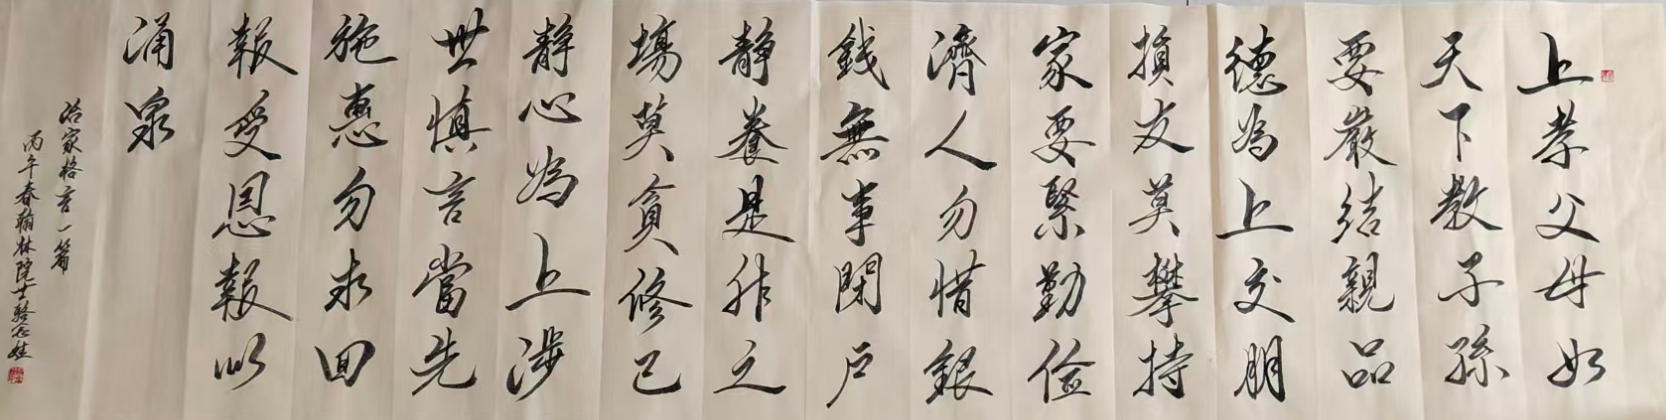 上孝父母如
天下教子孫
要嚴結親品
德為上交朋
損友莫攀持
家要緊勤儉
濟人勿惜銀
錢無事閉户
静養是非之
場莫貪修己
静心為上涉
世慎言當先
施惠勿求回
報受恩報以
涌泉
治家格言一篇
丙午春翰林院士駱志姓